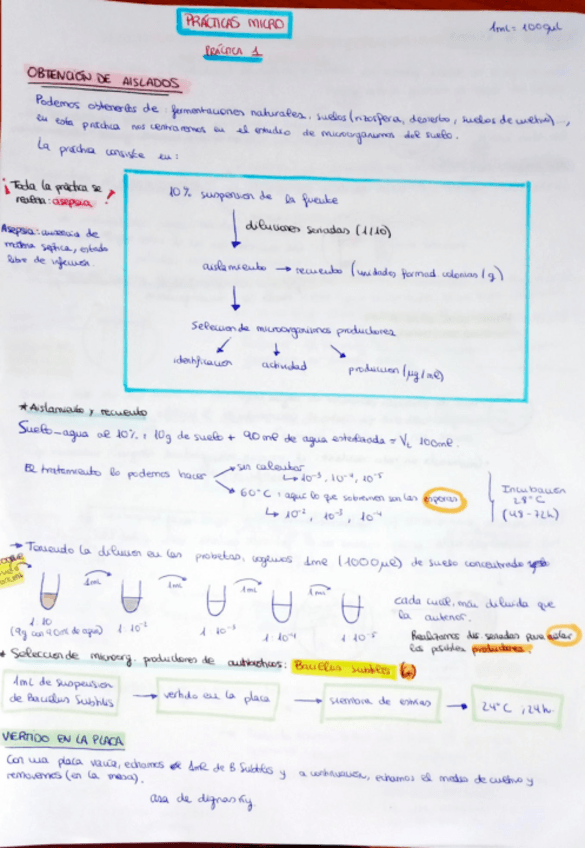 PRÁCTICAS MICRO
1ml = 1000µl
PRÁCTICA 1
OBTENCIÓN DE AISLADOS
Podemos obtenerlos de: fermentaciones naturales, suelos (rizosfera, desierto, suelos de cultivo),
en esta práctica nos centraremos en el estudio de microorganismos del suelo.
La práctica consiste en:
¡Toda la práctica se
realiza: asepsia!
Asepsia: ausencia de
materia séptica, estado
libre de infección.
10% suspensión de la fuente
diluciones seriadas (1/10)
aislamiento → recuento (unidades formad. colonias/g)
Selección de microorganismos productores
identificación actividad producción (µg/ml)
* Aislamiento y recuento
Suelo-agua al 10%: 10g de suelo + 90ml de agua = Vt 100ml.
El tratamiento lo podemos hacer
sin calentar
10⁻³, 10⁻⁴, 10⁻⁵
60°C: aquí lo que sobreviven son las esporas
10⁻², 10⁻³, 10⁻⁴
Incubación
28°C
(48-72h)
→ Teniendo la dilución en las probetas, cogimos 1ml (1000µl) de suelo concentrado
1ml 1ml 1ml 1ml
1:10 1:10⁻² 1:10⁻³ 1:10⁻⁴ 1:10⁻⁵
(9g con 90ml de agua)
cada cual, más diluida que
la anterior.
Realizamos dil. seriadas para aislar
los posibles productores.
* Selección de microorg. productores de antibióticos: Bacillus subtilis
1ml de suspensión
de Bacillus Subtilis
→ vertido en la placa → siembra de estrías → 24°C, 24h
VERTIDO EN LA PLACA
Con una placa vacía, echamos 1ml de B Subtilis y a continuación, echamos el medio de cultivo y
removemos (en la mesa).
asa de